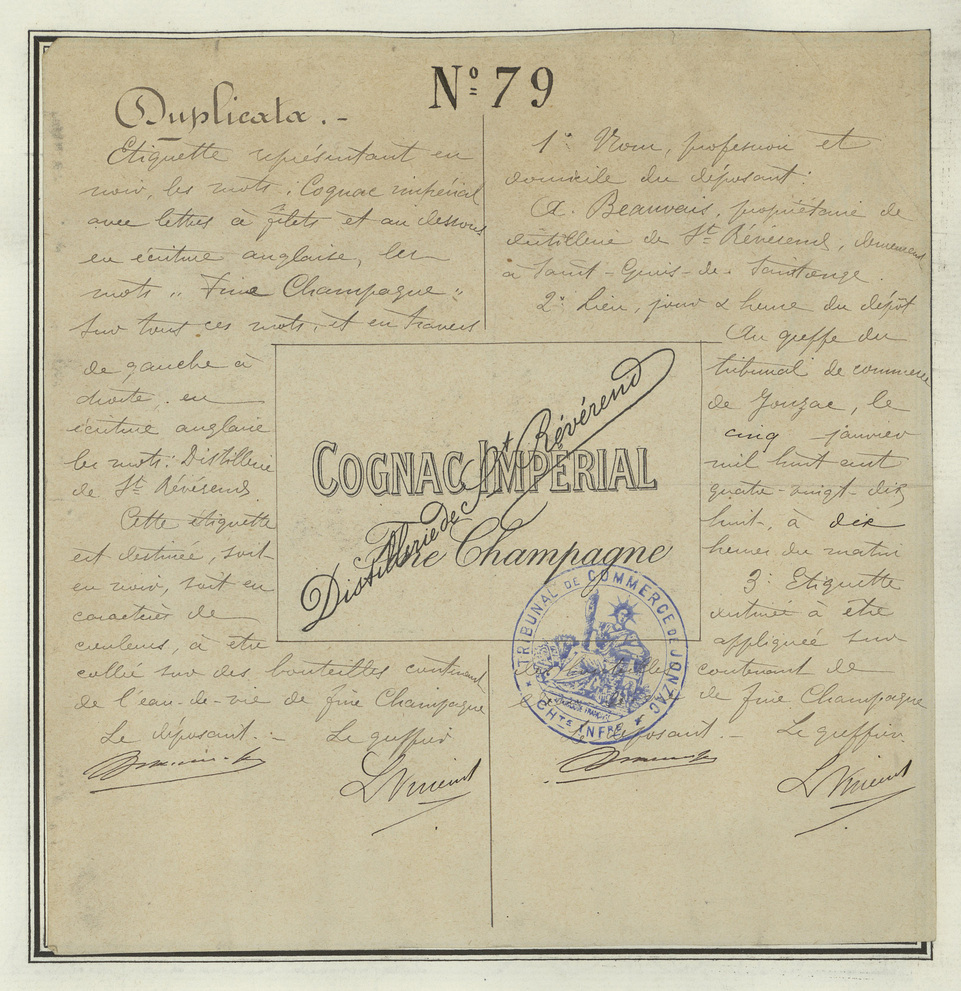 Nº 79
Duplicata. -
Etiquette représentant en
noir, les mots: Cognac impérial
avec lettres à filets et au dessous
en écriture anglaise, les
mots " Fine Champagne"
Sur tous ces mots, et en travers
de gauche à
droite, en
écriture anglaise
les mots: Distillerie
de St Révérend.
Cette étiquette
est destinée, soit
en noir, soit en
caractères de
couleurs, à être
collée sur des bouteilles contenant
de l'eau-de-vie de fine Champagne
Le déposant. - Le greffier
L Vincent
1º Nom, profession et
domicile du déposant:
A. Beauvais, propriétaire de
distillerie de St Révérend, demeurant
à Saint-Genis-de-Saintonge.
2º Lieu, jour & heure du dépôt
Au greffe du
tribunal de commerce
de Jonzac, le
cinq janvier
mil huit cent
quatre-vingt-dix
huit, à dix
heures du matin
3º Etiquette
destinée à être
appliquée sur
des bouteilles contenant de
de fine Champagne
Le déposant. - Le greffier.
L Vincent
COGNAC IMPÉRIAL
Fine Champagne
Distillerie de St Révérend
TRIBUNAL DE COMMERCE DE JONZAC
CHTE INFRE